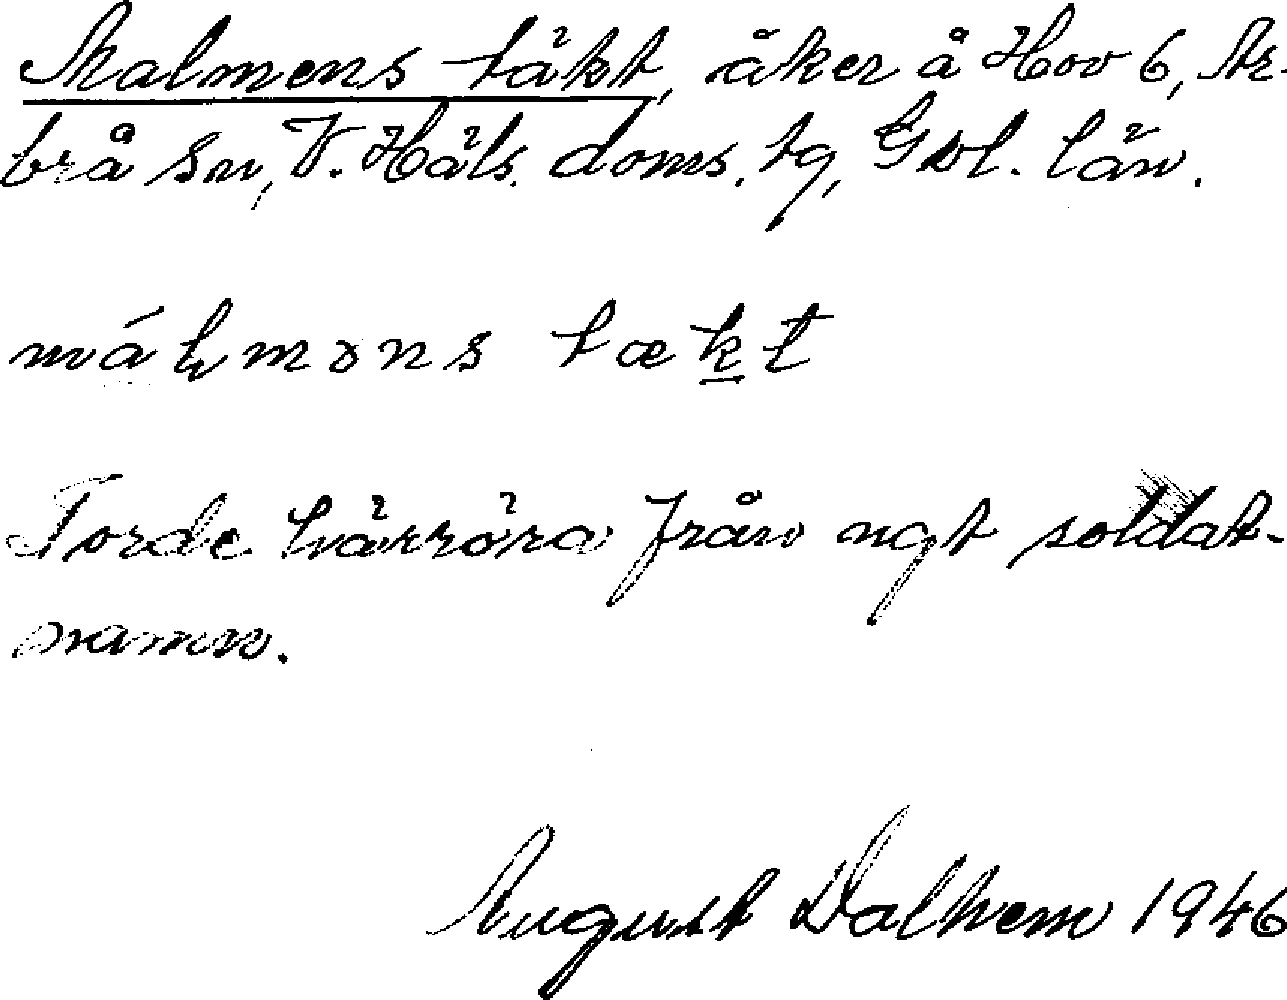 Malmens täkt, åker å Hov 6, Ar-
brå sn, V. Häls. doms. tg, Gvl. län.
tækt
Torde härröra från ngt soldat-
namn.
August Dalhem 1946